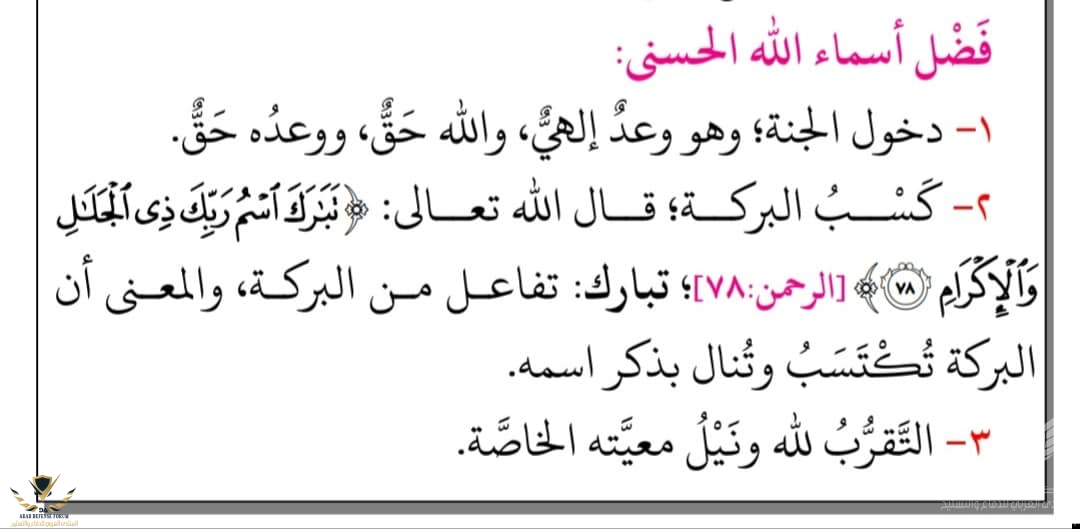 فَضْل أسماء الله الحسنى:
١- دخول الجنة؛ وهو وعدٌ إلهيٌّ، والله حَقٌّ، ووعدُه حَقٌّ.
٢- كَسْبُ البركة؛ قال الله تعالى: ﴿تَبَٰرَكَ ٱسۡمُ رَبِّكَ ذِي ٱلۡجَلَٰلِ
وَٱلۡإِكۡرَامِ ٧٨﴾ [الرحمن:٧٨]؛ تبارك: تفاعل من البركة، والمعنى أن
البركة تُكْتَسَبُ وتُنال بذكر اسمه.
٣- التَّقرُّبُ لله ونَيْلُ معيَّته الخاصَّة.
ARAB DEFENSE FORUM
المنتدى العربي للدفاع والتسليح